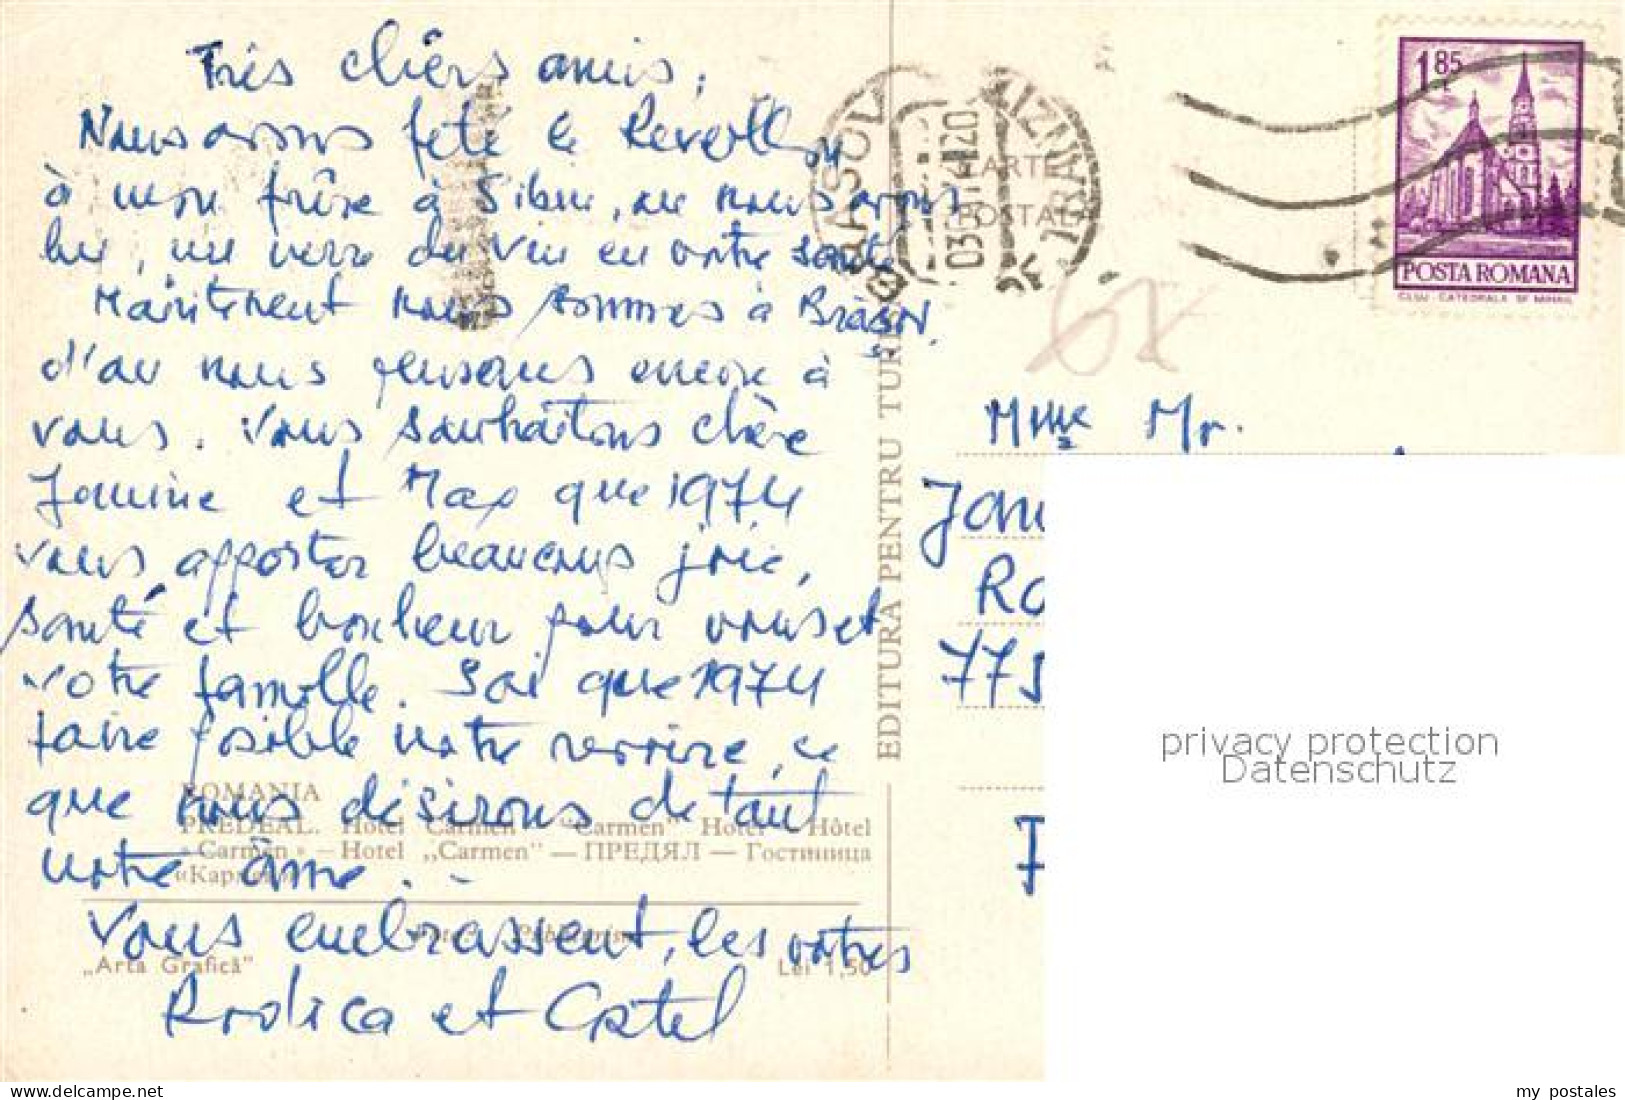 Très chèrs amis,
Nous avons fété le Réveillon
à mon frère à Sibiu, ou nous avons
bu, un verre du vin en votre santé
Maintenent nous sommes à Braşov,
d'ou nous pensons encore à
vous. Vous souhaitons chère
Janine et Max que 1974
vous apporter beaucoup joie,
santé et bonheur pour vous et
votre famille. Soi que 1974
faire posible notre revoire, ce
que nous désirons de tout
notre âme.
Vous embrassent, les votres
Rodica et Costel
ROMANIA
PREDEAL. Hotel Carmen "Carmen" Hotel Hôtel
«Carmen» — Hotel „Carmen" — ПРЕДЯЛ — Гостиница
«Кармен»
„Arta Grafică"
Lei 1,50
EDITURA PENTRU TURISM
CARTE
POSTALA
BRASOV
1,85 L
POSTA ROMANA
CLUJ - CATEDRALA SF. MIHAIL
67
Mme Mr.
Jan
Ro
77
privacy protection
Datenschutz
my postales